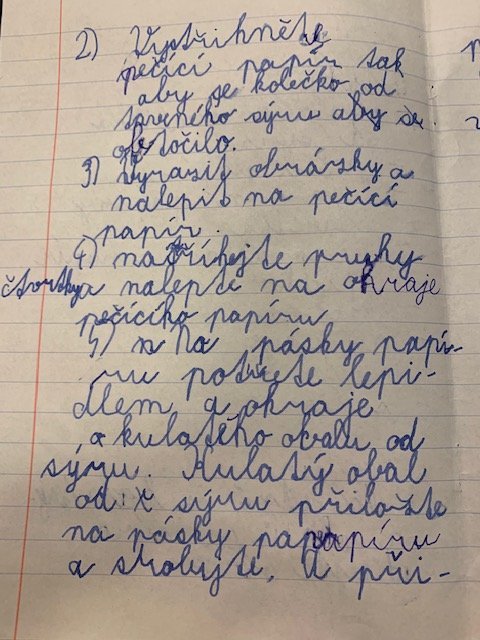 2) Vystřihněte
pečící papír tak
aby se kolečko od
taveného sýru aby se
obtočilo.
3) Vyrazit obrázky a
nalepit na pečící
papír.
4) nastříhejte pruhy
čtvrtky a nalepte na okraje
pečícího papíru
5) Na pásky papí-
ru potřete lepi-
dlem a okraje
a kulatého obalu od
sýru. Kulatý obal
od sýru přiložte
na pásky papapíru
a srolujte. A při-